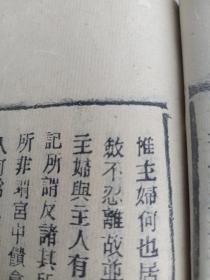 惟主婦何也居
斂不忍離故並
主婦與主人有
記所謂反諸其所
所非謂宮中饋食